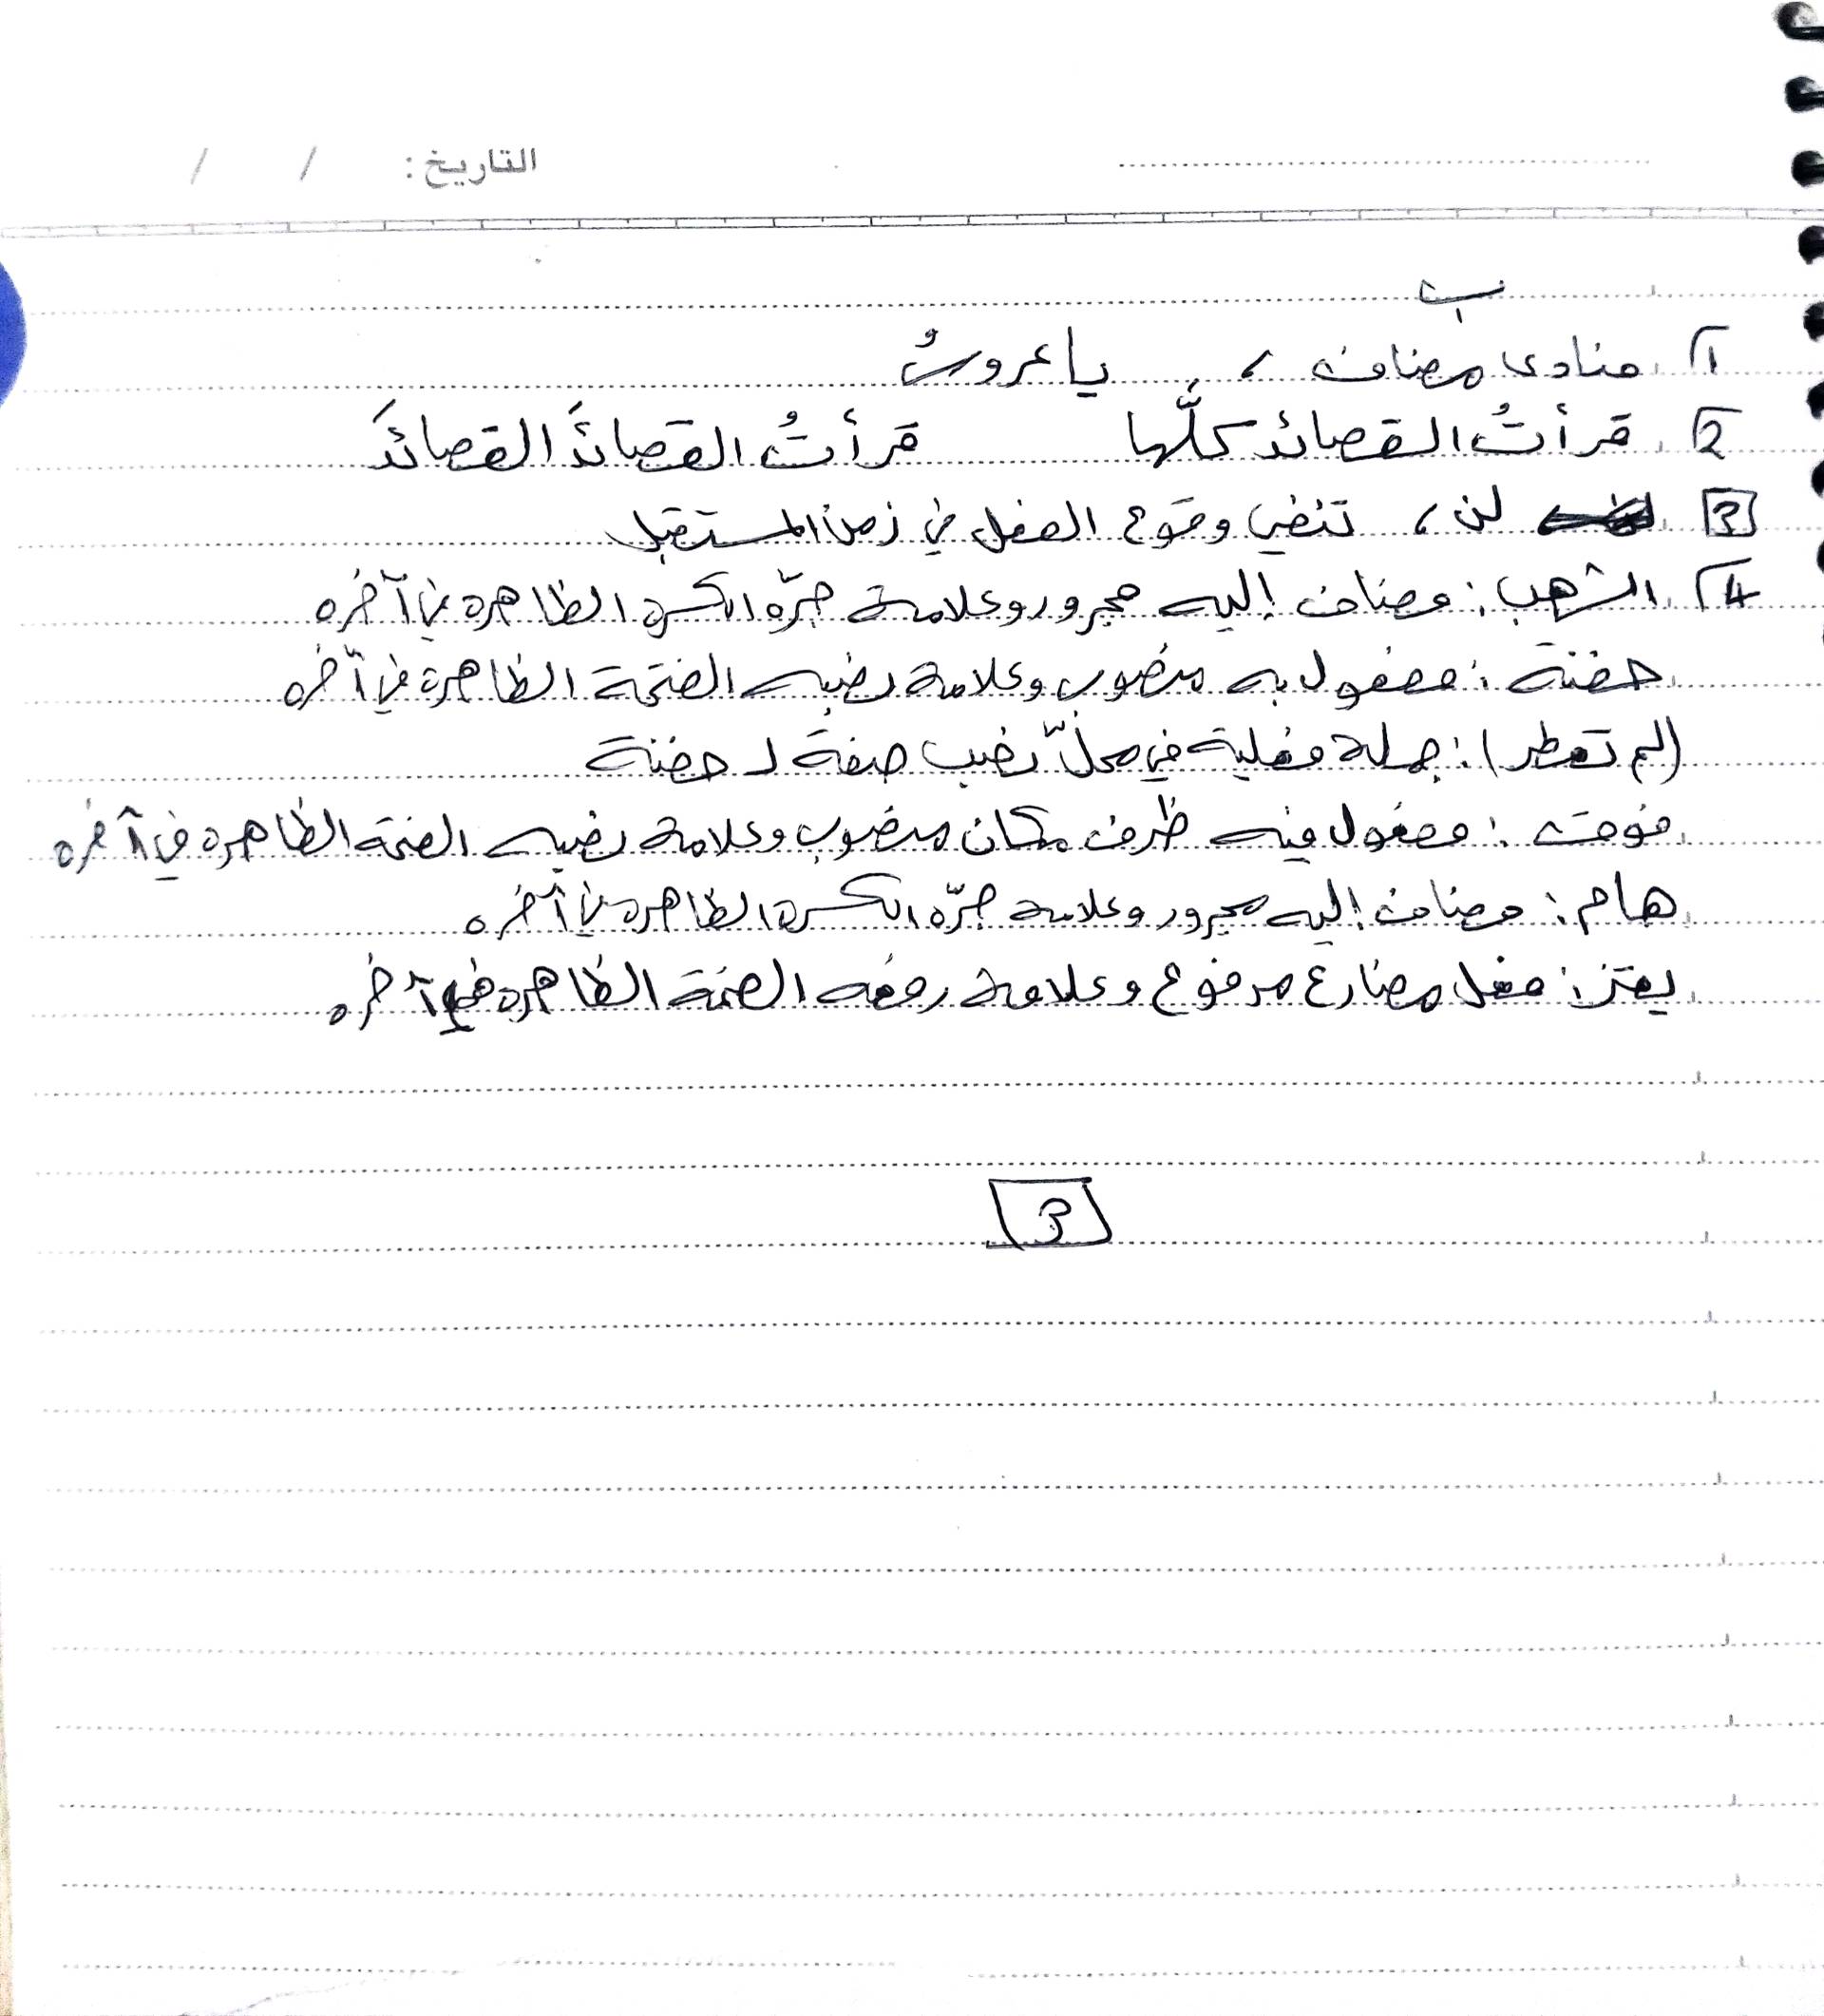 التاريخ: / /
ب
1 منادى مضاف ، يا عروسُ
2 قرأتُ القصائد كلَّها قرأتُ القصائدَ القصائدَ
3 لن ، تنفي وقوع الفعل في زمن المستقبل
4 الشهب : مضاف إليه مجرور وعلامة جرّه الكسرة الظاهرة في آخره
حفنة : مفعول به منصوب وعلامة نصبه الفتحة الظاهرة في آخره
(لم تمطر) : جملة فعلية في محلّ نصب صفة لـ حفنة
فوق : مفعول فيه ظرف مكان منصوب وعلامة نصبه الفتحة الظاهرة في آخره
هام : مضاف إليه مجرور وعلامة جرّه الكسرة الظاهرة في آخره
يعتز : فعل مضارع مرفوع وعلامة رفعه الضمة الظاهرة في آخره
3